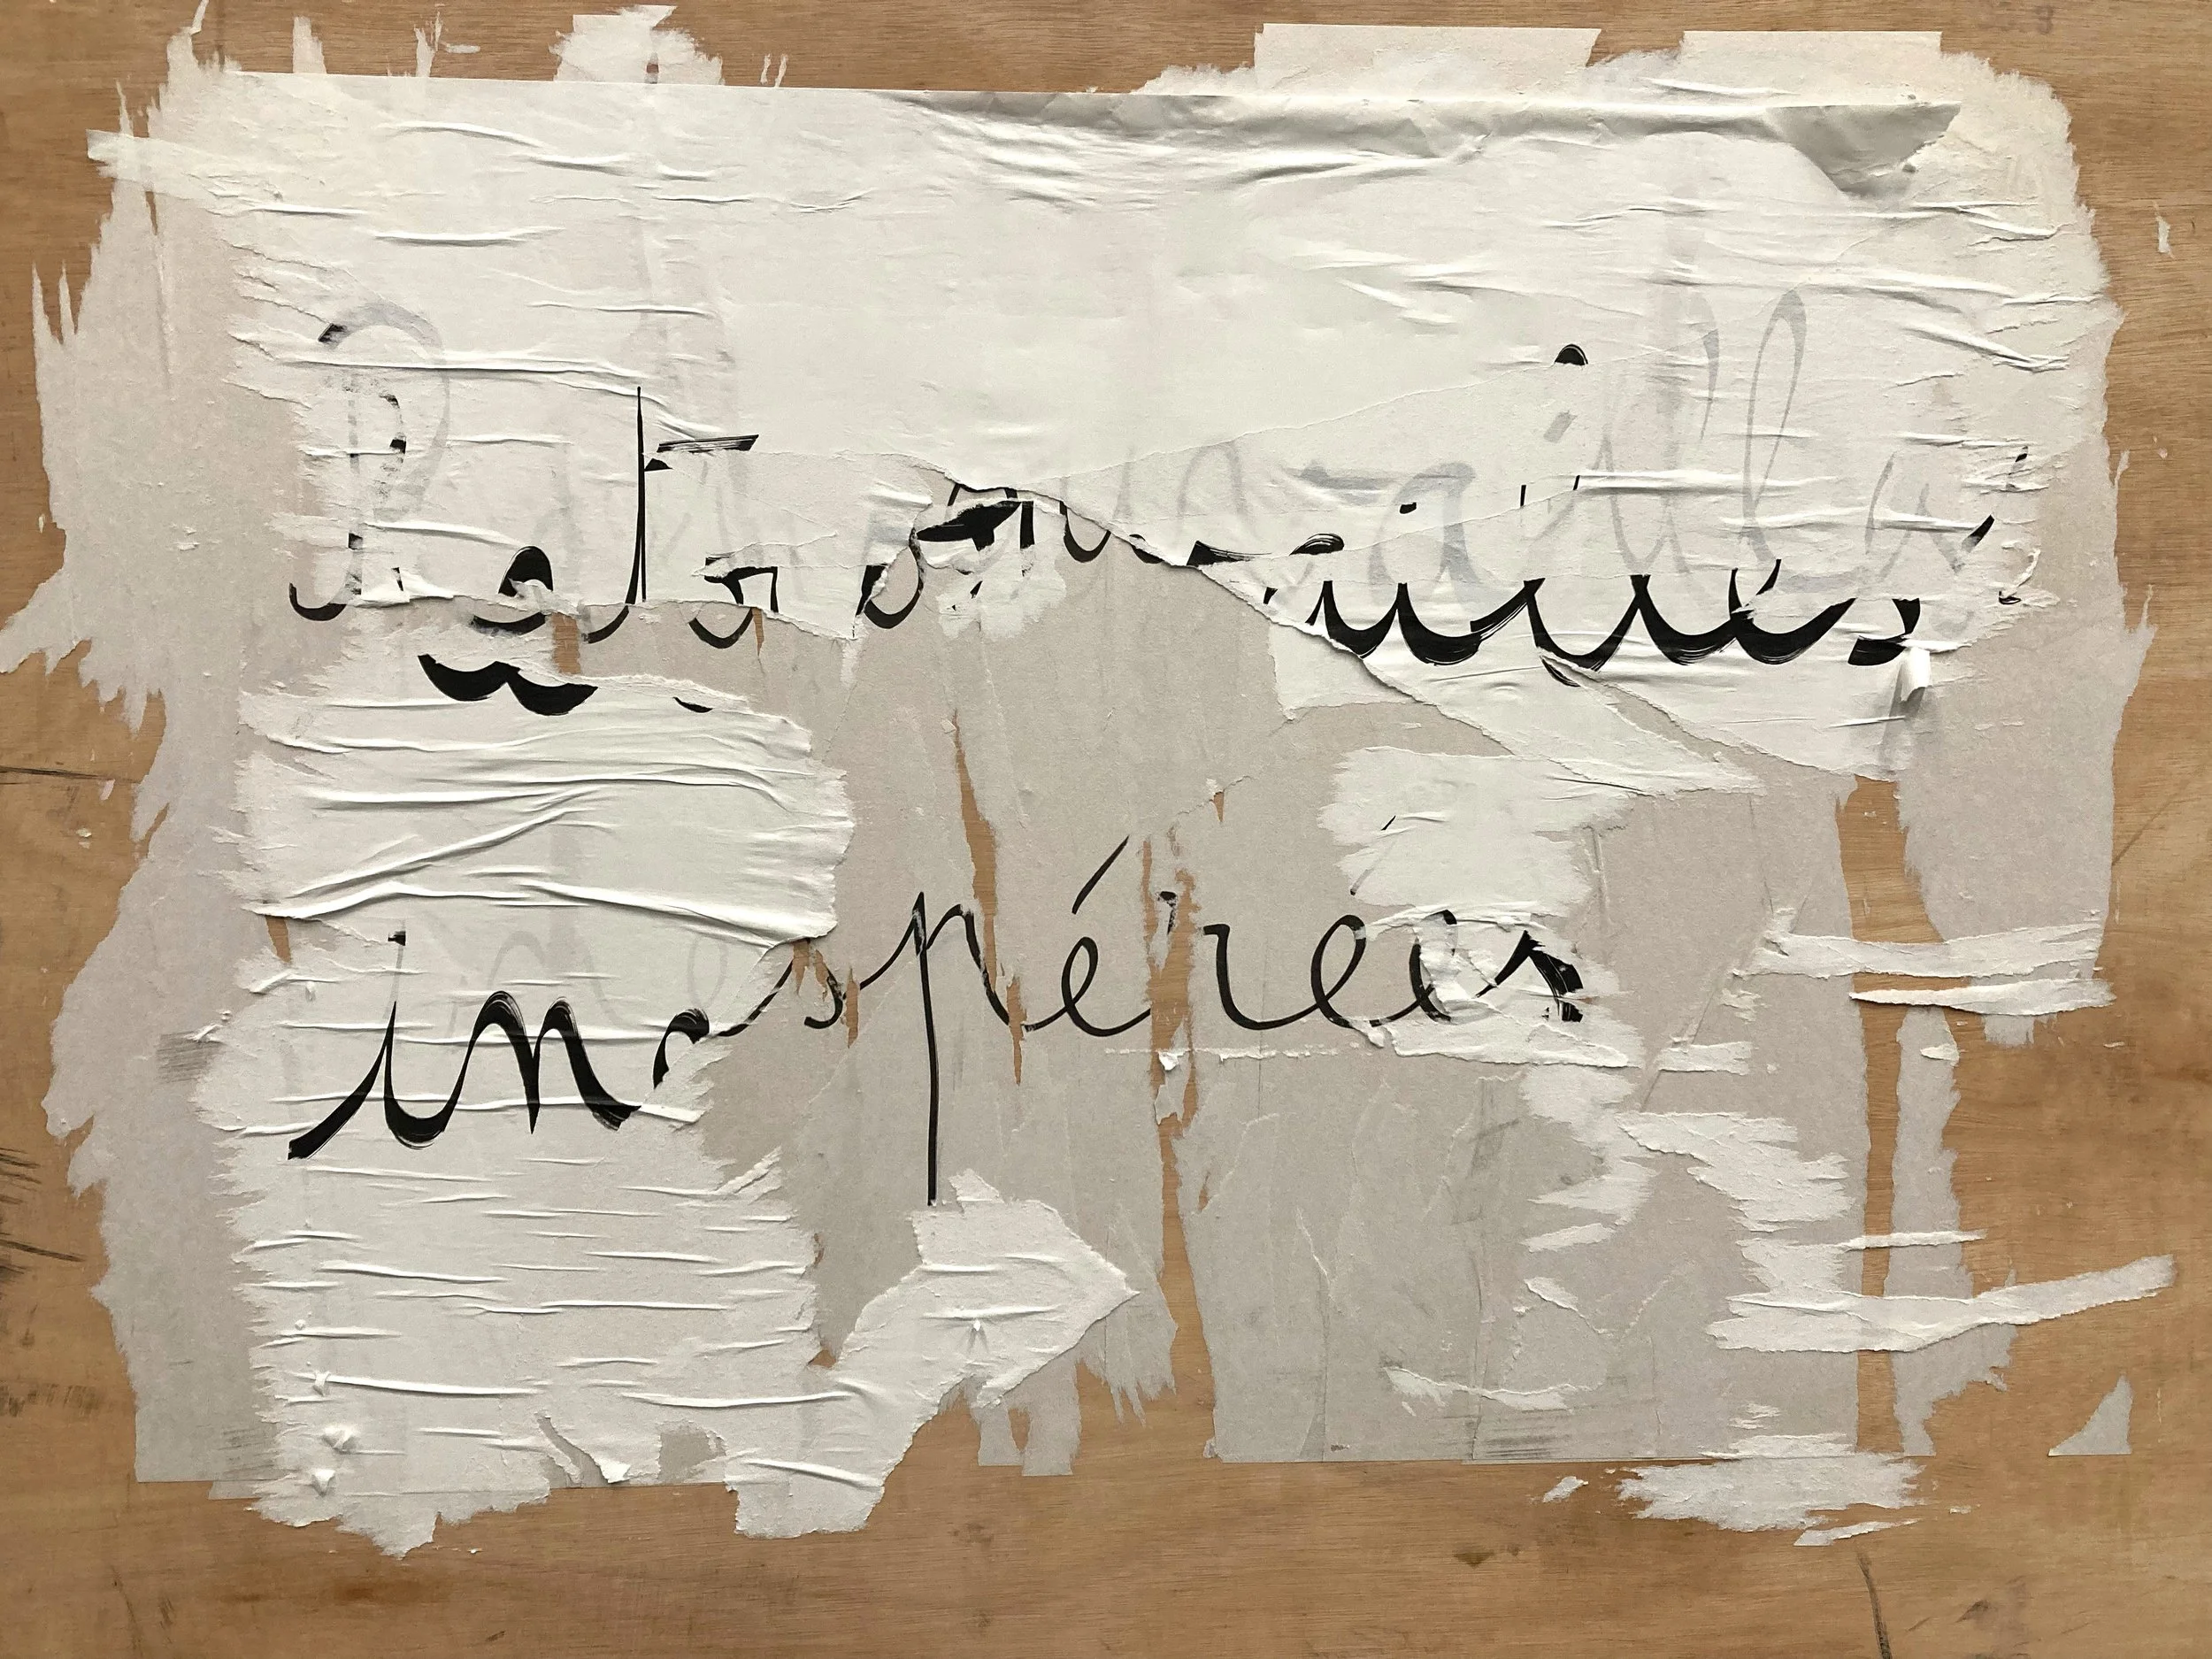 Retrouvailles
inespérées